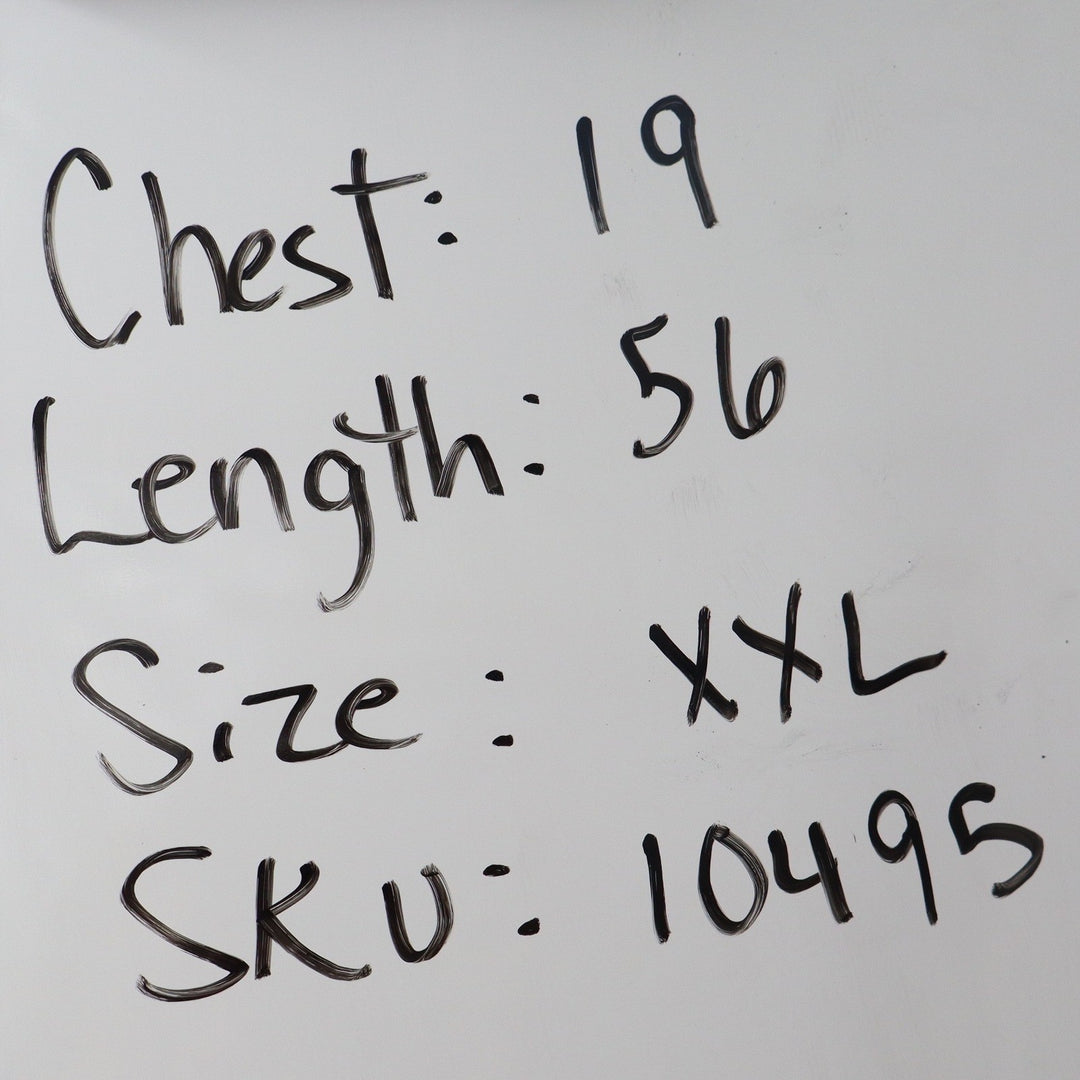 Chest: 19
Length: 56
Size: XXL
SKU: 10495